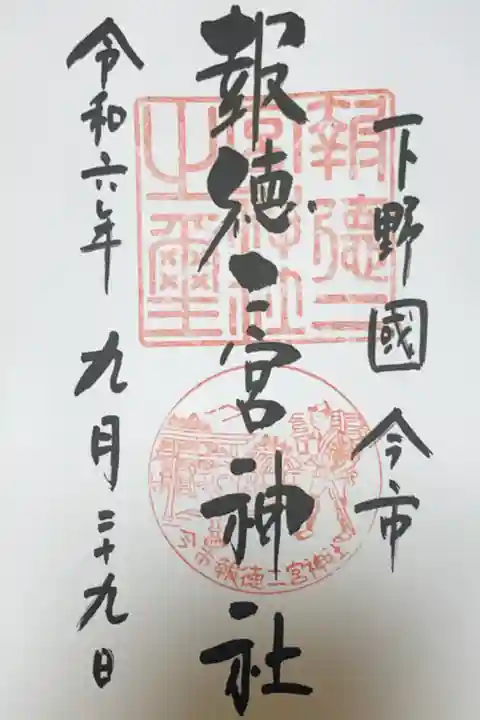 下野國 今市
報徳二宮神社
令和六年 九月二十九日
報徳二宮神社之璽
今市報徳二宮神社